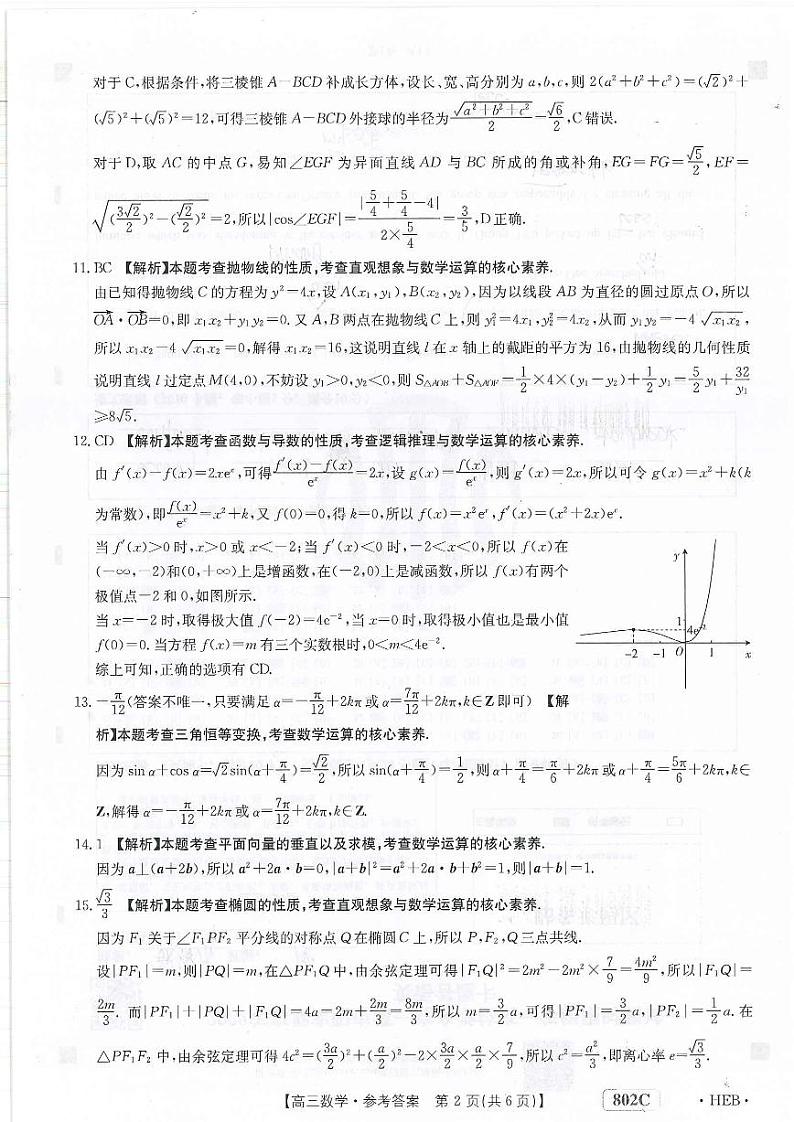 对于C,根据条件,将三棱锥 A-BCD 补成长方体,设长、宽、高分别为 a,b,c,则 2(a²+b²+c²)=(√2)²+
(√5)²+(√5)²=12,可得三棱锥 A-BCD 外接球的半径为√(a²+b²+c²)/2=√6/2,C错误.
对于D,取 AC 的中点 G,易知∠EGF 为异面直线 AD 与 BC 所成的角或补角,EG=FG=√5/2,EF=
√((3√2/2)²-(√2/2)²)=2,所以|cos∠EGF|=|5/4+5/4-4|/(2×5/4)=3/5,D正确.
11.BC 【解析】本题考查抛物线的性质,考查直观想象与数学运算的核心素养.
由已知得抛物线C的方程为 y²=4x,设 A(x₁,y₁),B(x₂,y₂),因为以线段 AB 为直径的圆过原点O,所以
OA·OB=0,即 x₁x₂+y₁y₂=0.又 A,B 两点在抛物线C上,则 y₁²=4x₁,y₂²=4x₂,从而 y₁y₂=-4√(x₁x₂),
所以 x₁x₂-4√(x₁x₂)=0,解得 x₁x₂=16,这说明直线 l 在 x 轴上的截距的平方为16,由抛物线的几何性质
说明直线 l 过定点 M(4,0),不妨设 y₁>0,y₂<0,则 S△AOB+S△AOF=1/2×4×(y₁-y₂)+1/2y₁=5/2y₁+32/y₁
≥8√5.
12.CD 【解析】本题考查函数与导数的性质,考查逻辑推理与数学运算的核心素养.
由 f′(x)-f(x)=2xeˣ,可得(f′(x)-f(x))/eˣ=2x,设 g(x)=f(x)/eˣ,则 g′(x)=2x,所以可令 g(x)=x²+k(k
为常数),即f(x)/eˣ=x²+k,又 f(0)=0,得 k=0,所以 f(x)=x²eˣ,f′(x)=(x²+2x)eˣ.
当 f′(x)>0 时,x>0 或 x<-2;当 f′(x)<0 时,-2<x<0,所以 f(x)在
(-∞,-2)和(0,+∞)上是增函数,在(-2,0)上是减函数,所以 f(x)有两个
极值点-2 和 0,如图所示.
当 x=-2 时,取得极大值 f(-2)=4e⁻²,当 x=0 时,取得极小值也是最小值
f(0)=0.当方程 f(x)=m 有三个实数根时,0<m<4e⁻².
综上可知,正确的选项有CD.
y
1
4e⁻²
-2 -1 O 1 x
13.-π/12(答案不唯一,只要满足 α=-π/12+2kπ 或 α=7π/12+2kπ,k∈Z 即可) 【解
析】本题考查三角恒等变换,考查数学运算的核心素养.
因为 sin α+cos α=√2sin(α+π/4)=√2/2,所以 sin(α+π/4)=1/2,则α+π/4=π/6+2kπ或α+π/4=5π/6+2kπ,k∈
Z,解得 α=-π/12+2kπ 或 α=7π/12+2kπ,k∈Z.
14.1 【解析】本题考查平面向量的垂直以及求模,考查数学运算的核心素养.
因为 a⊥(a+2b),所以 a²+2a·b=0,|a+b|²=a²+2a·b+b²=1,则|a+b|=1.
15.√3/3 【解析】本题考查椭圆的性质,考查直观想象与数学运算的核心素养.
因为 F₁ 关于∠F₁PF₂ 平分线的对称点 Q 在椭圆C上,所以 P,F₂,Q 三点共线.
设|PF₁|=m,则|PQ|=m,在△PF₁Q 中,由余弦定理可得|F₁Q|²=2m²-2m²×7/9=4m²/9,所以|F₁Q|=
2m/3.而|PF₁|+|PQ|+|F₁Q|=4a=2m+2m/3=8m/3,所以 m=3/2a,可得|PF₁|=3/2a,|PF₂|=1/2a.在
△PF₁F₂ 中,由余弦定理可得 4c²=(3a/2)²+(a/2)²-2×3a/2×a/2×7/9,所以 c²=a²/3,即离心率 e=√3/3.
【高三数学·参考答案 第2页(共6页)】 802C ·HEB·